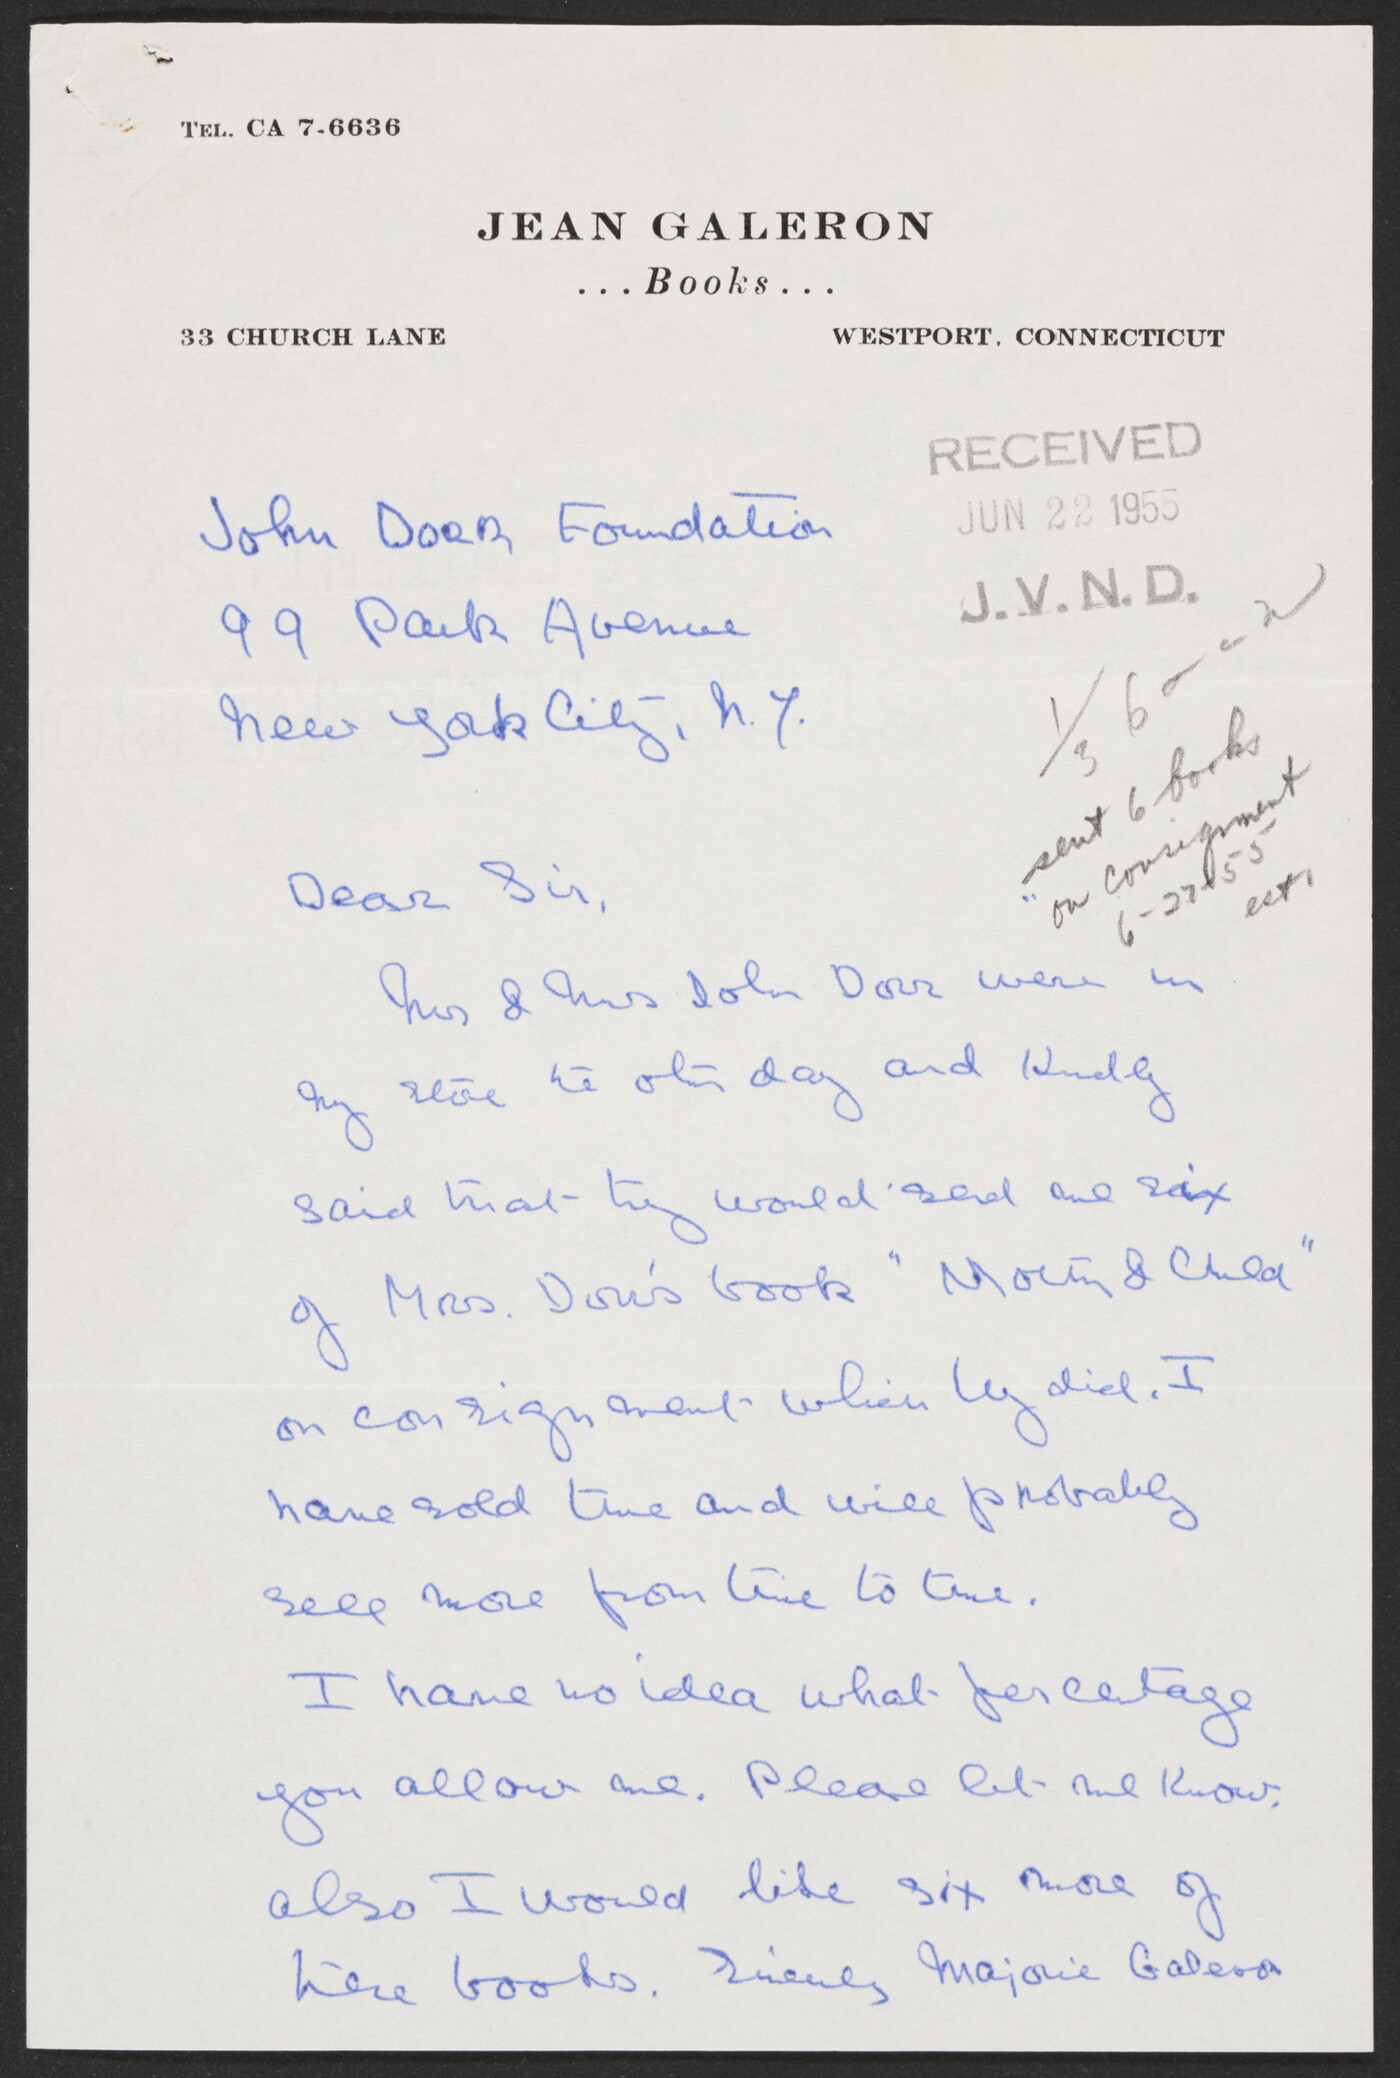 TEL. CA 7-6636
JEAN GALERON
...Books...
33 CHURCH LANE
WESTPORT, CONNECTICUT
RECEIVED
JUN 22 1955
J.V.N.D.
John Dorr Foundation
99 Park Avenue
New York City, N.Y.
1/3 6
sent 6 books
on consignment
6-27-55
Dear Sir,
Mr & Mrs John Dorr were in
my store the other day and kindly
said that they would send me six
of Mrs. Dorr's book "Mother & Child"
on consignment which they did. I
have sold three and will probably
sell more from time to time.
I have no idea what percentage
you allow me. Please let me know.
also I would like six more of
these books. Sincerely Marjorie Galeron